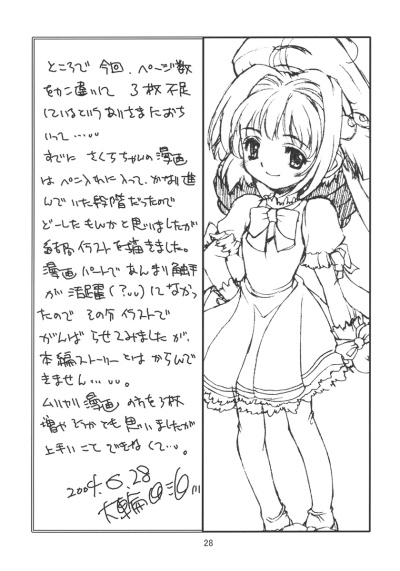 ところで今回、ページ数
をかん違いして3枚不足
しているというありさまにおち
いって…
すでにさくらちゃんの漫画
はペン入れに入って、かなり進
んでいた段階だったので
どーしたもんかと思いましたが
結局イラストを描きました。
漫画パートであんまり触手
が活躍(?)してなかっ
たのでその分イラストで
がんばらせてみましたが、
本編ストーリーとはからんで
きません…。
ムリヤリ漫画の方を3枚
増やそうかとも思いましたが
上手いことできなくて…。
2004.6.28
28